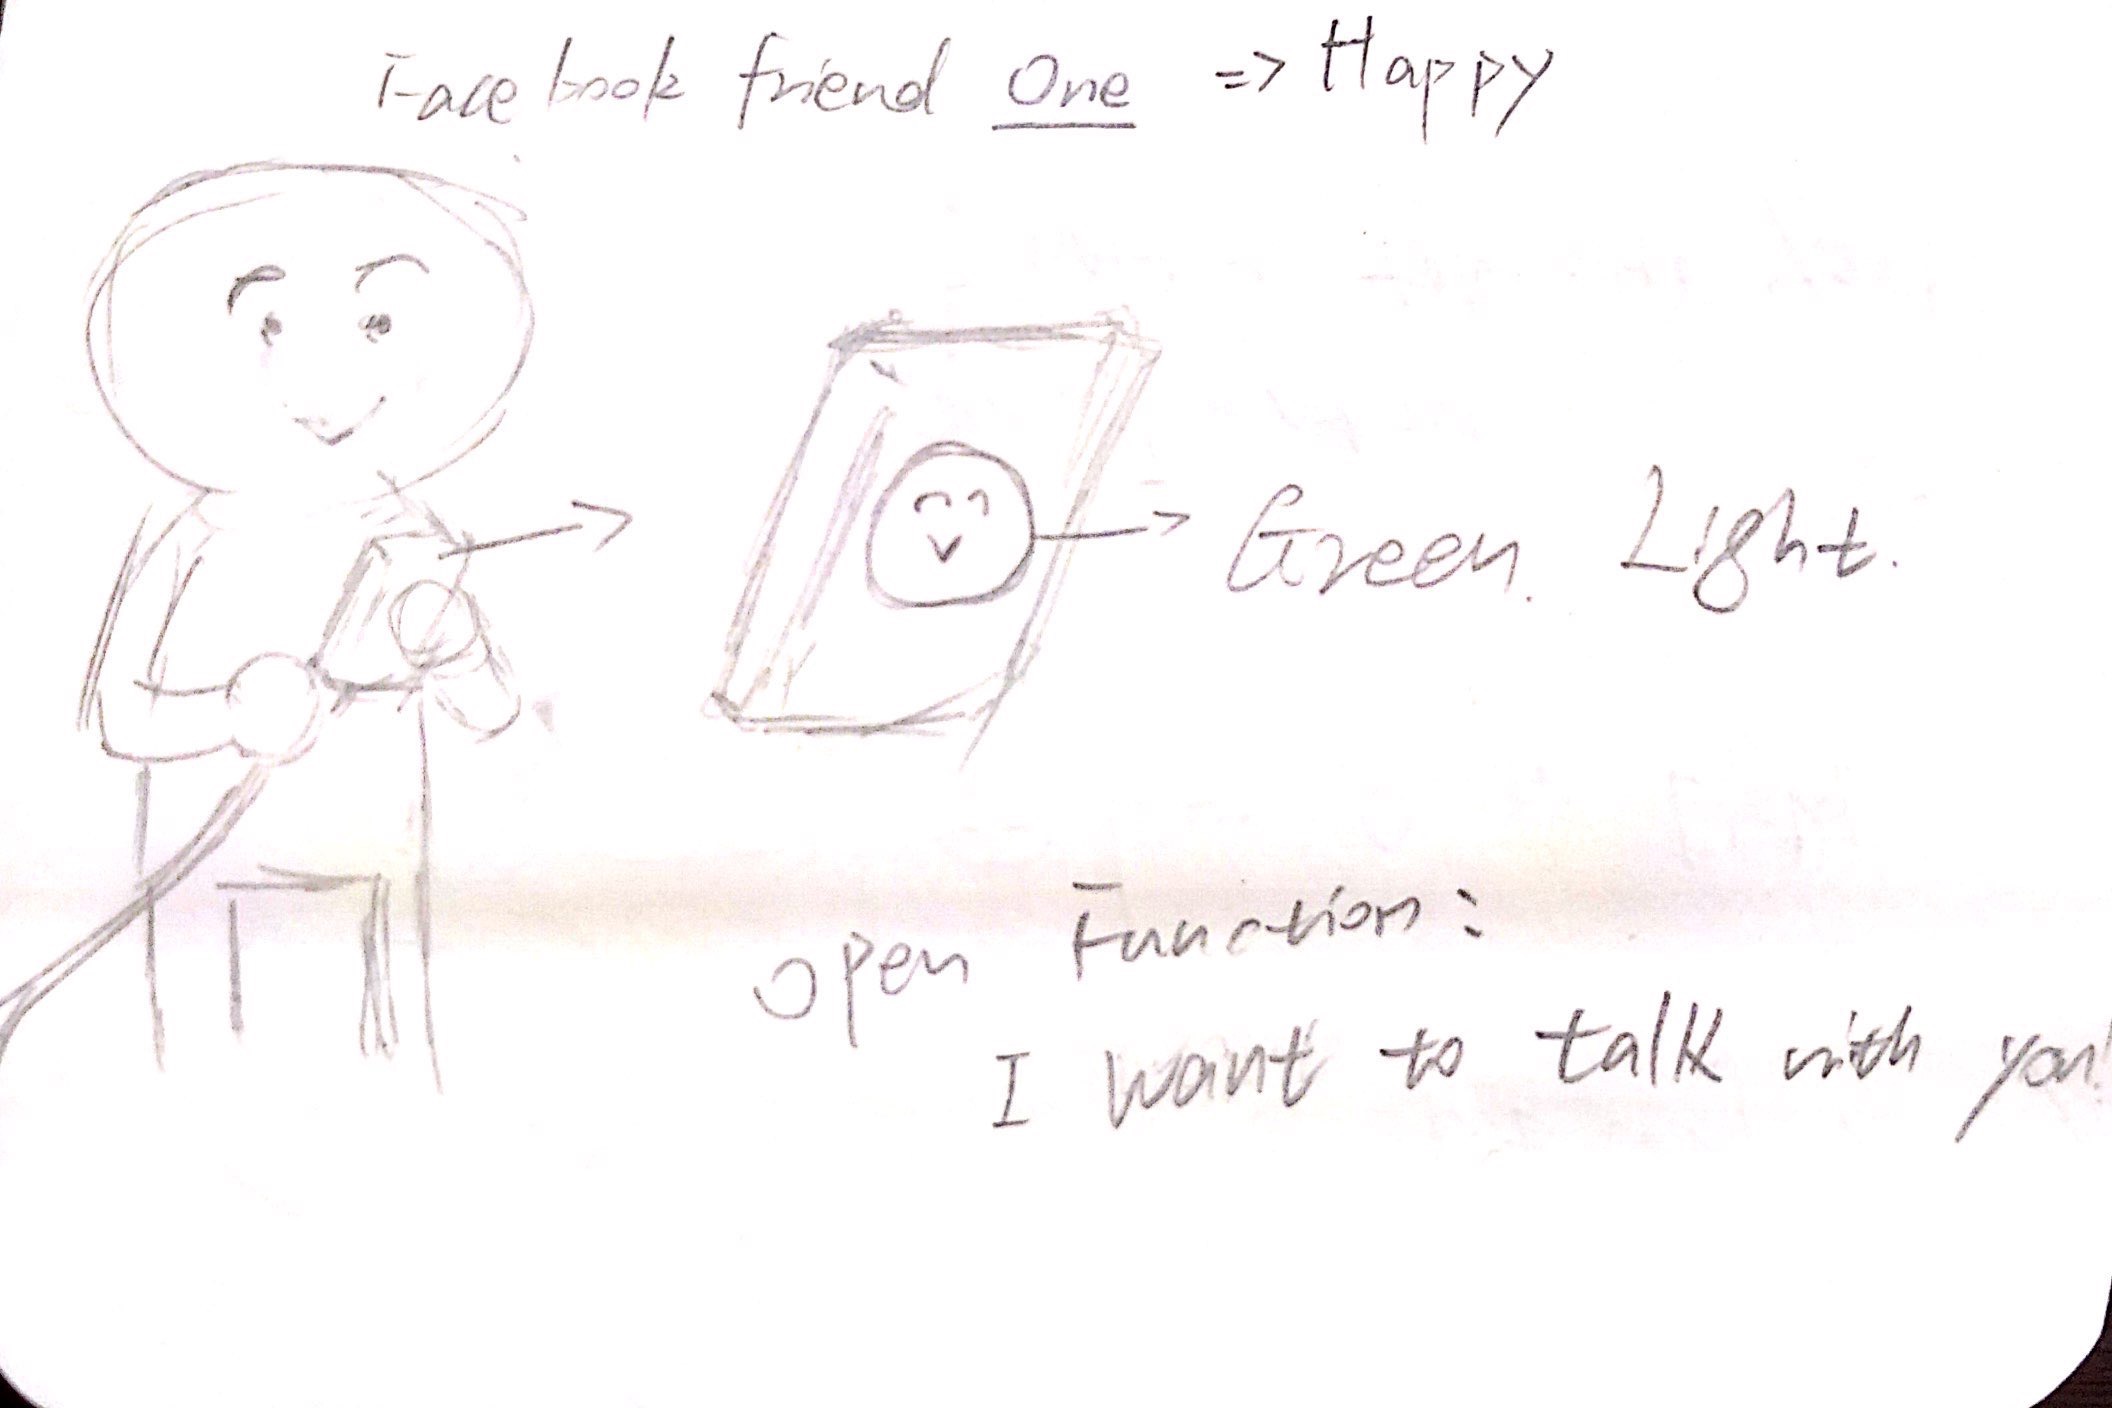 Facebook friend One => Happy
Green. Light.
open Function:
I want to talk with you!